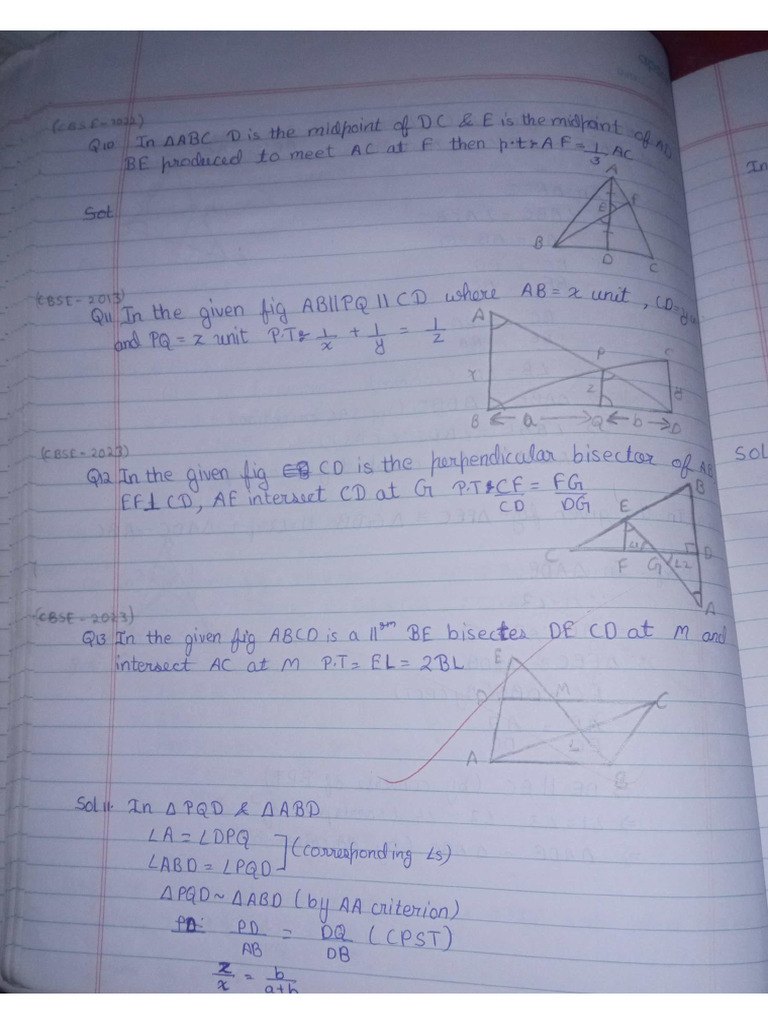 (CBSE-2022)
Q10 In ΔABC D is the midpoint of DC & E is the midpoint of AD
BE produced to meet AC at F then p.t AF = 1/3 AC
Sol
A
E
F
B
D
C
In
(CBSE-2013)
Q11 In the given fig AB||PQ||CD where AB = x unit, CD = y
and PQ = z unit P.T 1/x + 1/y = 1/z
A
P
C
z
y
B ← a → Q ← b → D
(CBSE-2023)
Q12 In the given fig CD is the perpendicular bisector of AB
EF⊥CD, AE intersect CD at G P.T CF/CD = FG/DG
Sol
B
E
C
D
F
G
∠2
A
(CBSE-2023)
Q13 In the given fig ABCD is a ||gm BE bisectes DE CD at M and
intersect AC at M P.T = EL = 2BL
E
D
M
C
A
L
B
Sol 11. In ΔPQD & ΔABD
∠A = ∠DPQ
∠ABD = ∠PQD
(corresponding ∠s)
ΔPQD ~ ΔABD (by AA criterion)
PD/AB = DQ/DB (CPST)
z/x = b/a+b